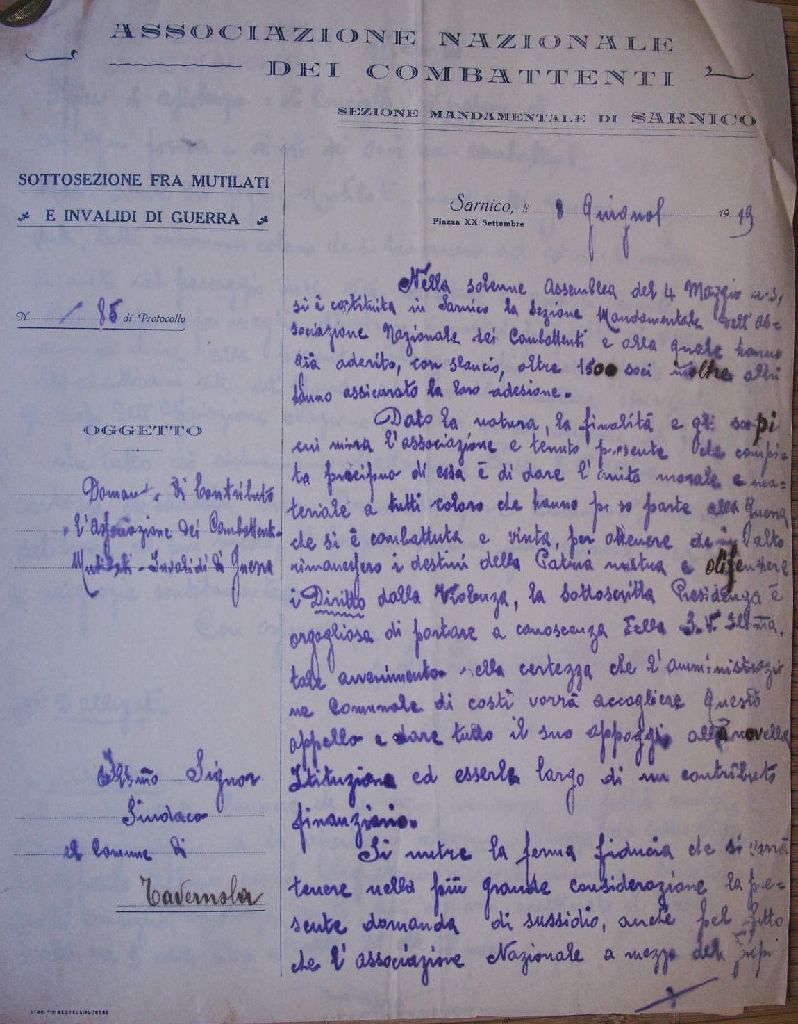 ASSOCIAZIONE NAZIONALE
DEI COMBATTENTI
SEZIONE MANDAMENTALE DI SARNICO
SOTTOSEZIONE FRA MUTILATI
E INVALIDI DI GUERRA
Sarnico, li 8 Giugno 1919
Piazza XX Settembre
N. 85 di Protocollo
OGGETTO
Domanda di Contributo
l'Associazione dei Combattenti
Mutilati - Invalidi di Guerra
Ill.mo Signor
Sindaco
del Comune di
Tavernola
Nella solenne Assemblea del 4 Maggio u.s.
si è costituita in Sarnico la Sezione Mandamentale dell'As-
sociazione Nazionale dei Combattenti e alla quale hanno
già aderito, con slancio, oltre 1500 soci inoltre altri
hanno assicurato la loro adesione.
Dato la natura, la finalità e gli scopi
cui mira l'associazione e tenuto presente che compi-
ta precipuo di essa è di dare l'unità morale e ma-
teriale a tutti coloro che hanno preso parte alla Guerra
che si è combattuta e vinta, per ottenere che in alto
rimanessero i destini della Patria nostra e difendere
i Diritto dalla Violenza, la sottoscritta Presidenza è
orgogliosa di portare a conoscenza della S.V. Ill.ma,
tale avvenimento nella certezza che l'amministrazio
ne Comunale di costì vorrà accogliere questo
appello e dare tutto il suo appoggio alla novella
Istituzione ed esserle largo di un contributo
finanziario.
Si nutre la ferma fiducia che si vorrà
tenere nella più grande considerazione la pre-
sente domanda di sussidio, anche pel fatto
che l'associazione Nazionale a mezzo dei propi